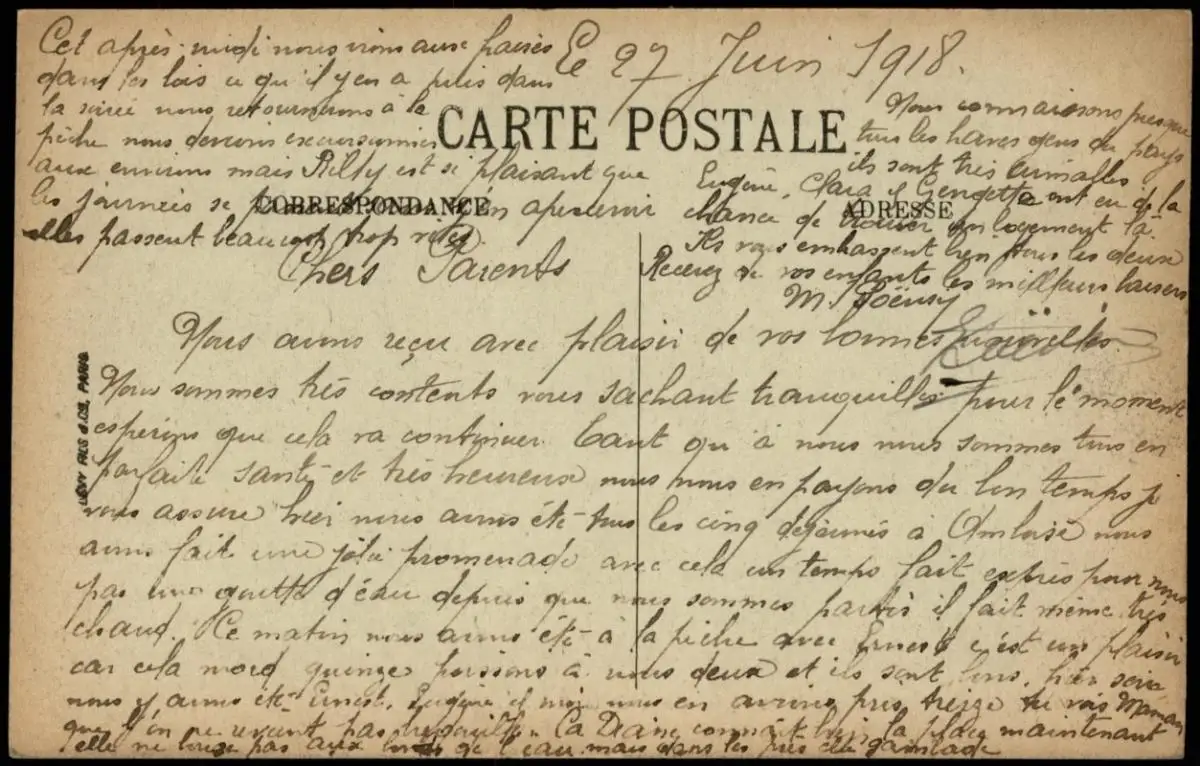 Le 27 Juin 1918.
CARTE POSTALE
CORRESPONDANCE
ADRESSE
Chers Parents
Nous avons reçu avec plaisir de vos bonnes nouvelles.
Nous sommes très contents vous sachant tranquilles pour le moment
espérons que cela va continuer. Tant qu'à nous nous sommes tous en
parfaite santé et très heureux nous nous en payons du bon temps je
vous assure hier nous avons été tous les cinq déjeunés à Amboise nous
avons fait une jolie promenade avec cela un temps fait exprès pour nous
pas une goutte d'eau depuis que nous sommes partis il fait même très
chaud. Ce matin nous avons été à la pêche avec Ernest c'est un plaisir
car cela mord quinze poissons à nous deux et ils sont bons, hier soir
nous y avons été Ernest, Eugène et moi nous en avons pris treize tu vois Maman
que l'on ne revient pas bredouille. La Diane connait bien la place maintenant
elle ne bouge pas aux bords de l'eau mais dans les prés elle
Cet après-midi nous irons aux fraises
dans les bois ce qu'il y en a puis dans
la soirée nous retournerons à la
pêche nous devions excursionner
aux environs mais Rilly est si plaisant que
les journées se apercevoir
elles passent beaucoup trop vites.
Nous connaissons presque
tous les gens du pays
ils sont très aimables
Eugène, Clara et Georgette ont eu de la
chance de trouver un logement là.
Ils vous embrassent bien tous les deux
Recevez de vos enfants les meilleurs baisers
LEVY FILS & CIE, PARIS